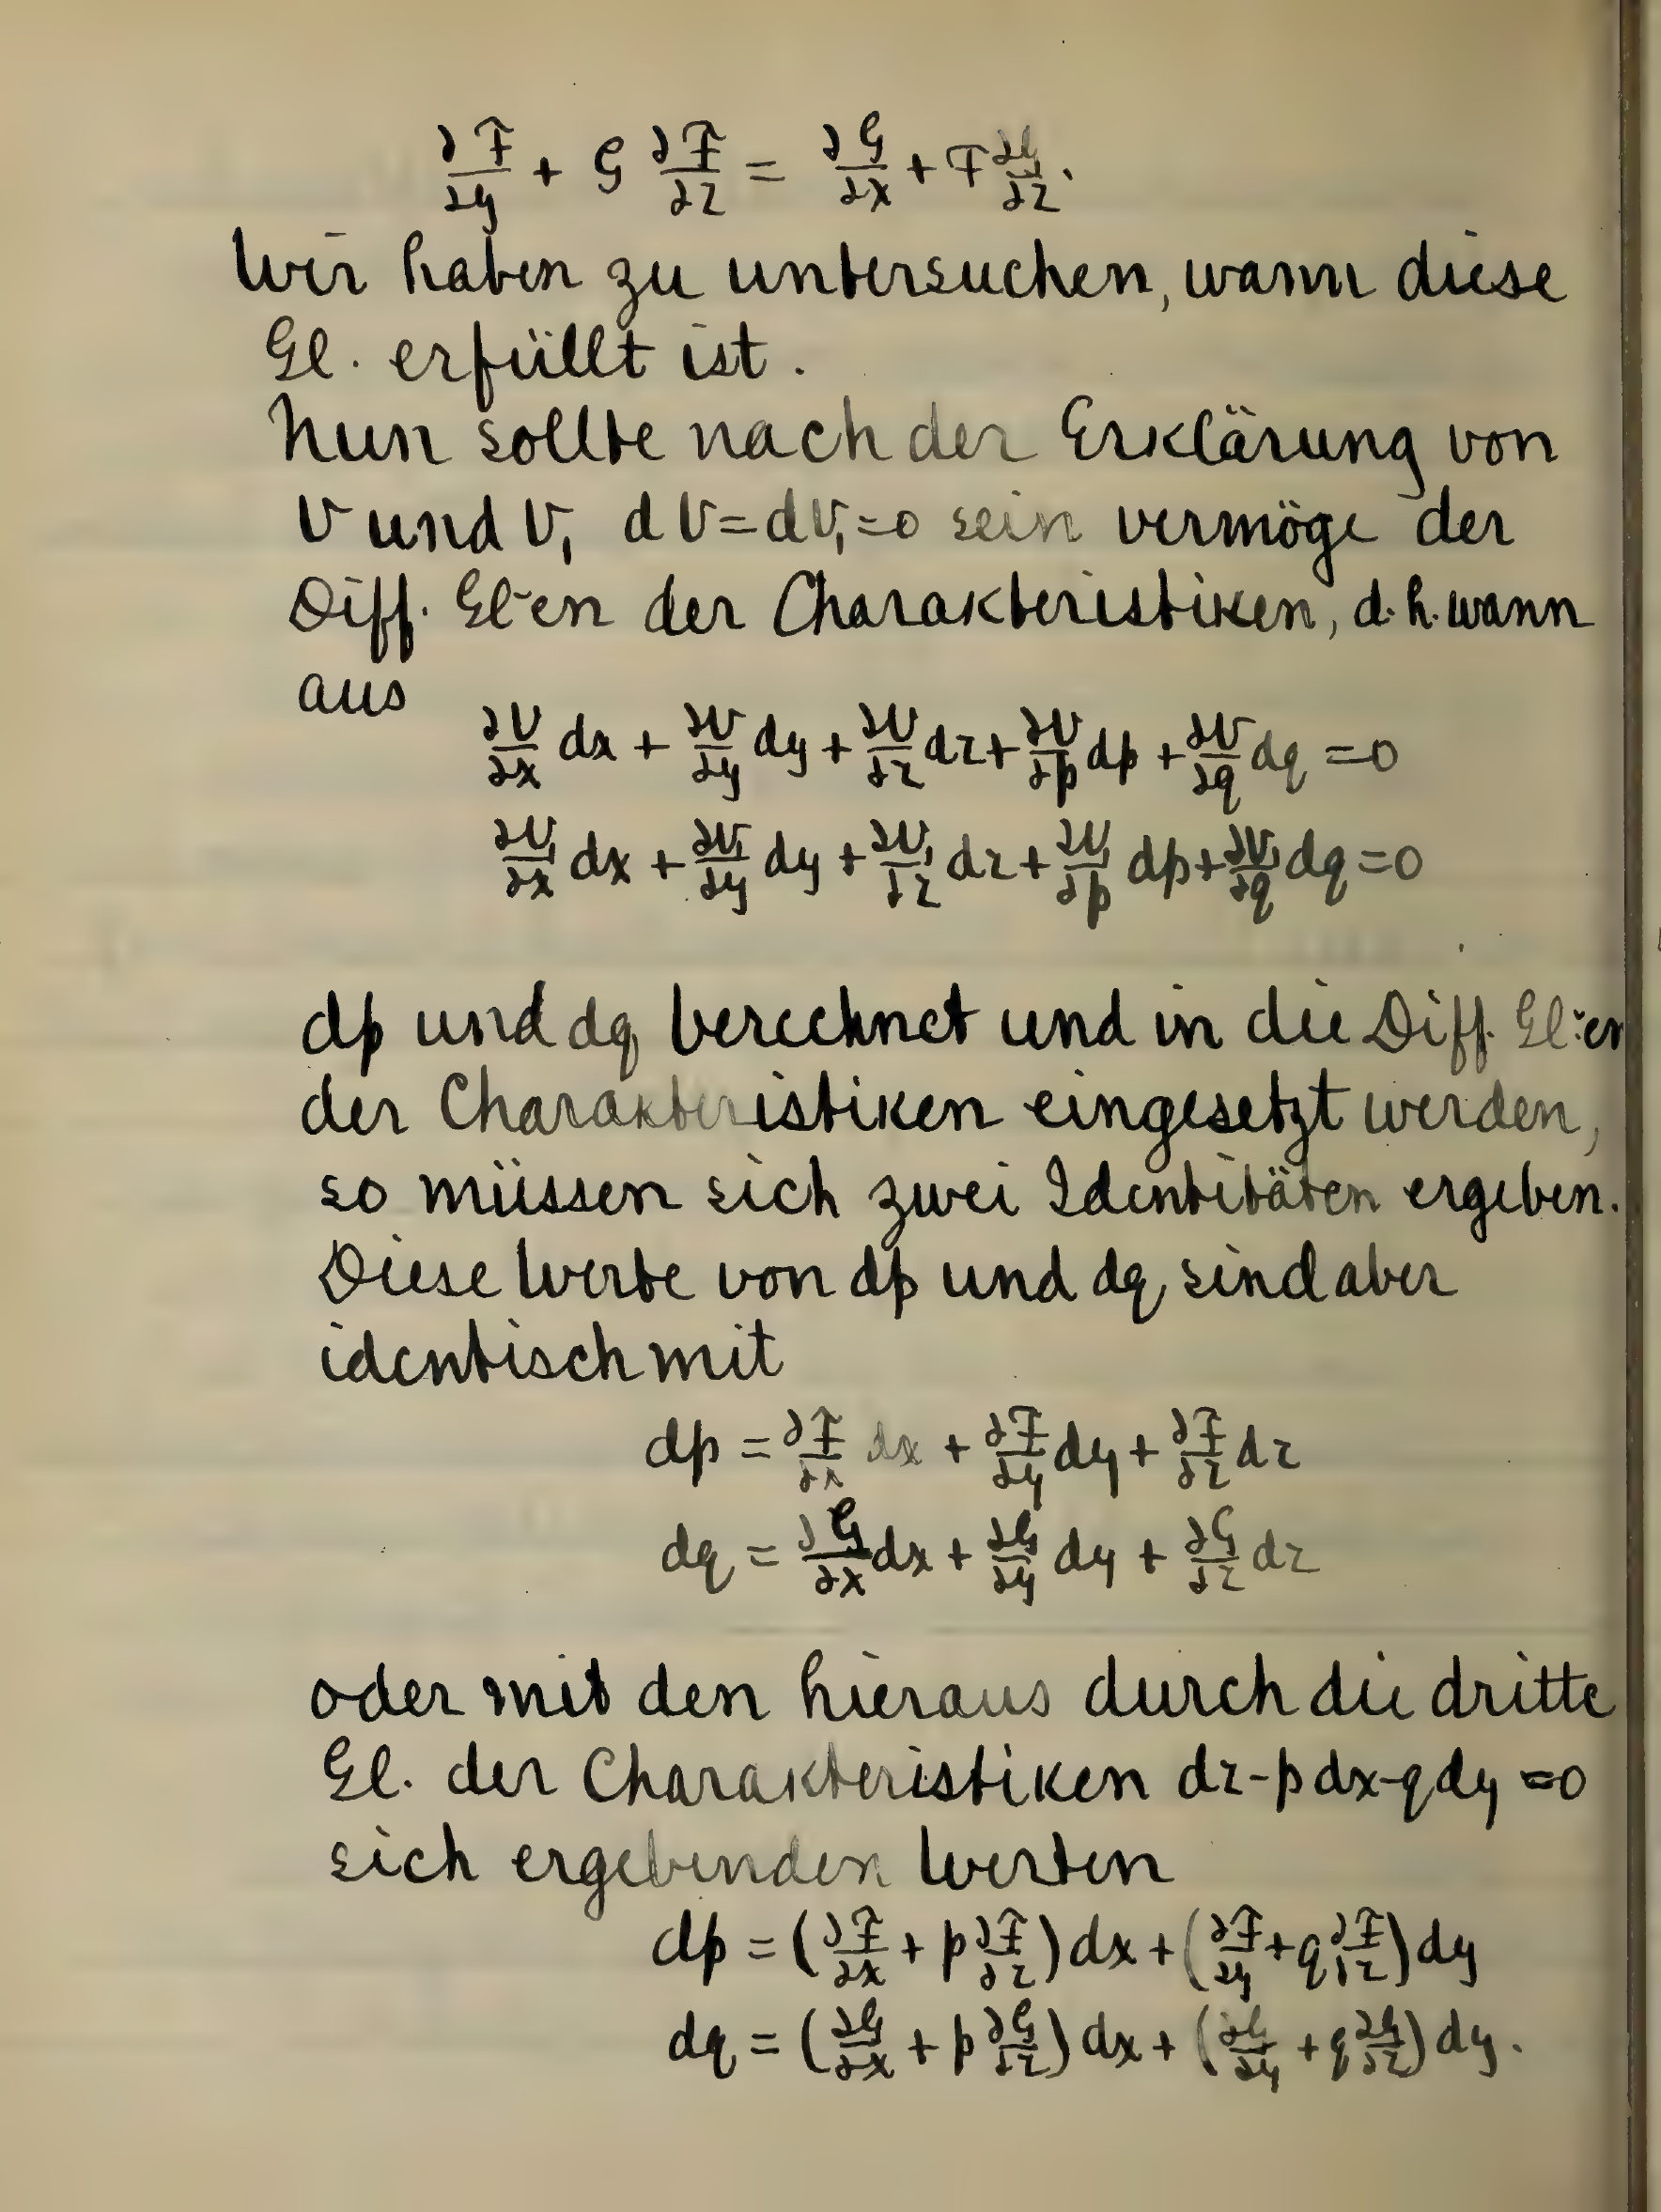 ∂F/∂y + G ∂F/∂z = ∂G/∂x + F ∂G/∂z.
Wir haben zu untersuchen, wann diese
Gl. erfüllt ist.
Nun sollte nach der Erklärung von
V und V₁ dV=dV₁=0 sein vermöge der
Diff. Gl-en der Charakteristiken, d.h. wann
aus
∂V/∂x dx + ∂V/∂y dy + ∂V/∂z dz + ∂V/∂p dp + ∂V/∂q dq = 0
∂V₁/∂x dx + ∂V₁/∂y dy + ∂V₁/∂z dz + ∂V₁/∂p dp + ∂V₁/∂q dq = 0
dp und dq berechnet und in die Diff. Gl-en
der Charakteristiken eingesetzt werden,
so müssen sich zwei Identitäten ergeben.
Diese Werte von dp und dq sind aber
identisch mit
dp = ∂F/∂x dx + ∂F/∂y dy + ∂F/∂z dz
dq = ∂G/∂x dx + ∂G/∂y dy + ∂G/∂z dz
oder mit den hieraus durch die dritte
Gl. der Charakteristiken dz-pdx-qdy=0
sich ergebenden Werten
dp = (∂F/∂x + p ∂F/∂z) dx + (∂F/∂y + q ∂F/∂z) dy
dq = (∂G/∂x + p ∂G/∂z) dx + (∂G/∂y + q ∂G/∂z) dy.